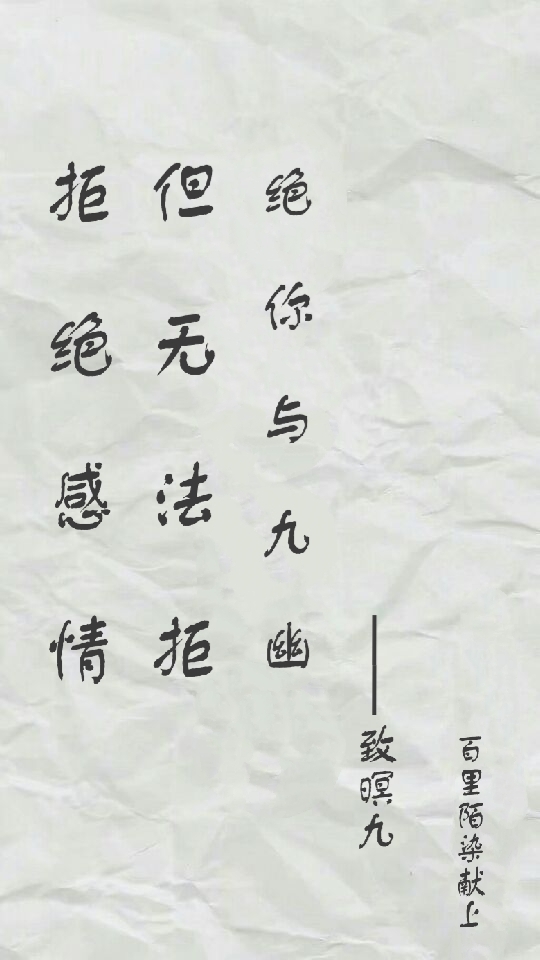 拒绝感情
但无法拒
绝你与九幽
——致暝九
百里陌染献上